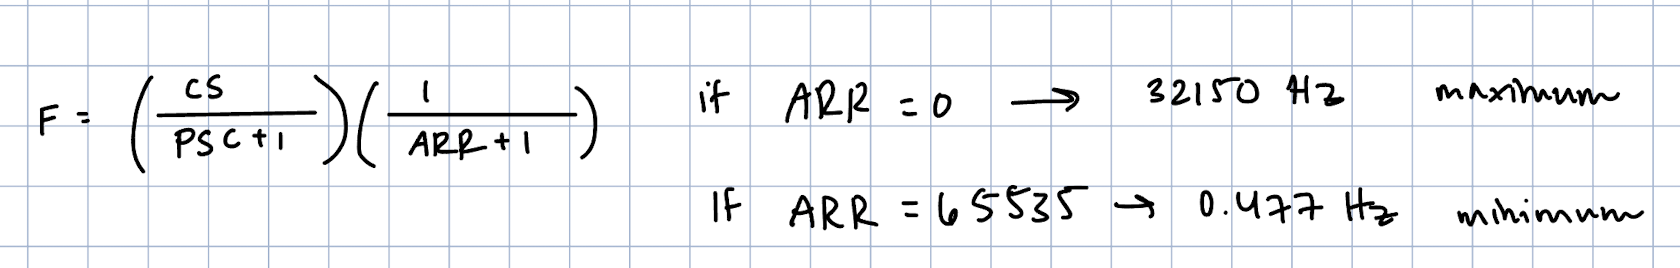 F = (CS / PSC+1)(1 / ARR+1) if ARR = 0 → 32150 Hz maximum
If ARR = 65535 → 0.477 Hz minimum